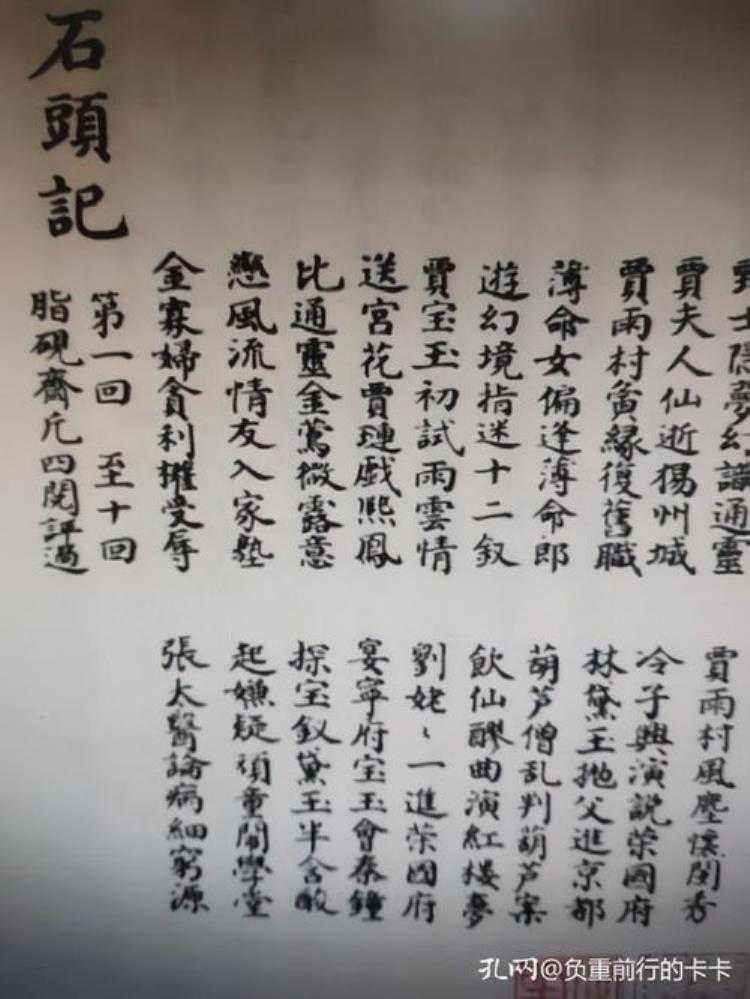 甄士隱夢幻識通靈 賈雨村風塵懷閨秀
賈夫人仙逝揚州城 冷子興演說荣國府
賈雨村夤緣復舊職 林黛玉抛父進京都
薄命女偏逢薄命郎 葫芦僧乱判葫芦案
遊幻境指迷十二釵 飲仙醪曲演紅楼夢
賈宝玉初試雨雲情 劉姥〻一進荣國府
送宮花賈璉戲熙鳳 宴寧府宝玉會秦鐘
比通靈金鶯微露意 探宝釵黛玉半含酸
戀風流情友入家塾 起嫌疑頑童鬧學堂
金寡婦貪利權受辱 張太醫論病細窮源
第一回 至十回
脂硯齋凢四閱評過
石頭記
孔网@负重前行的卡卡